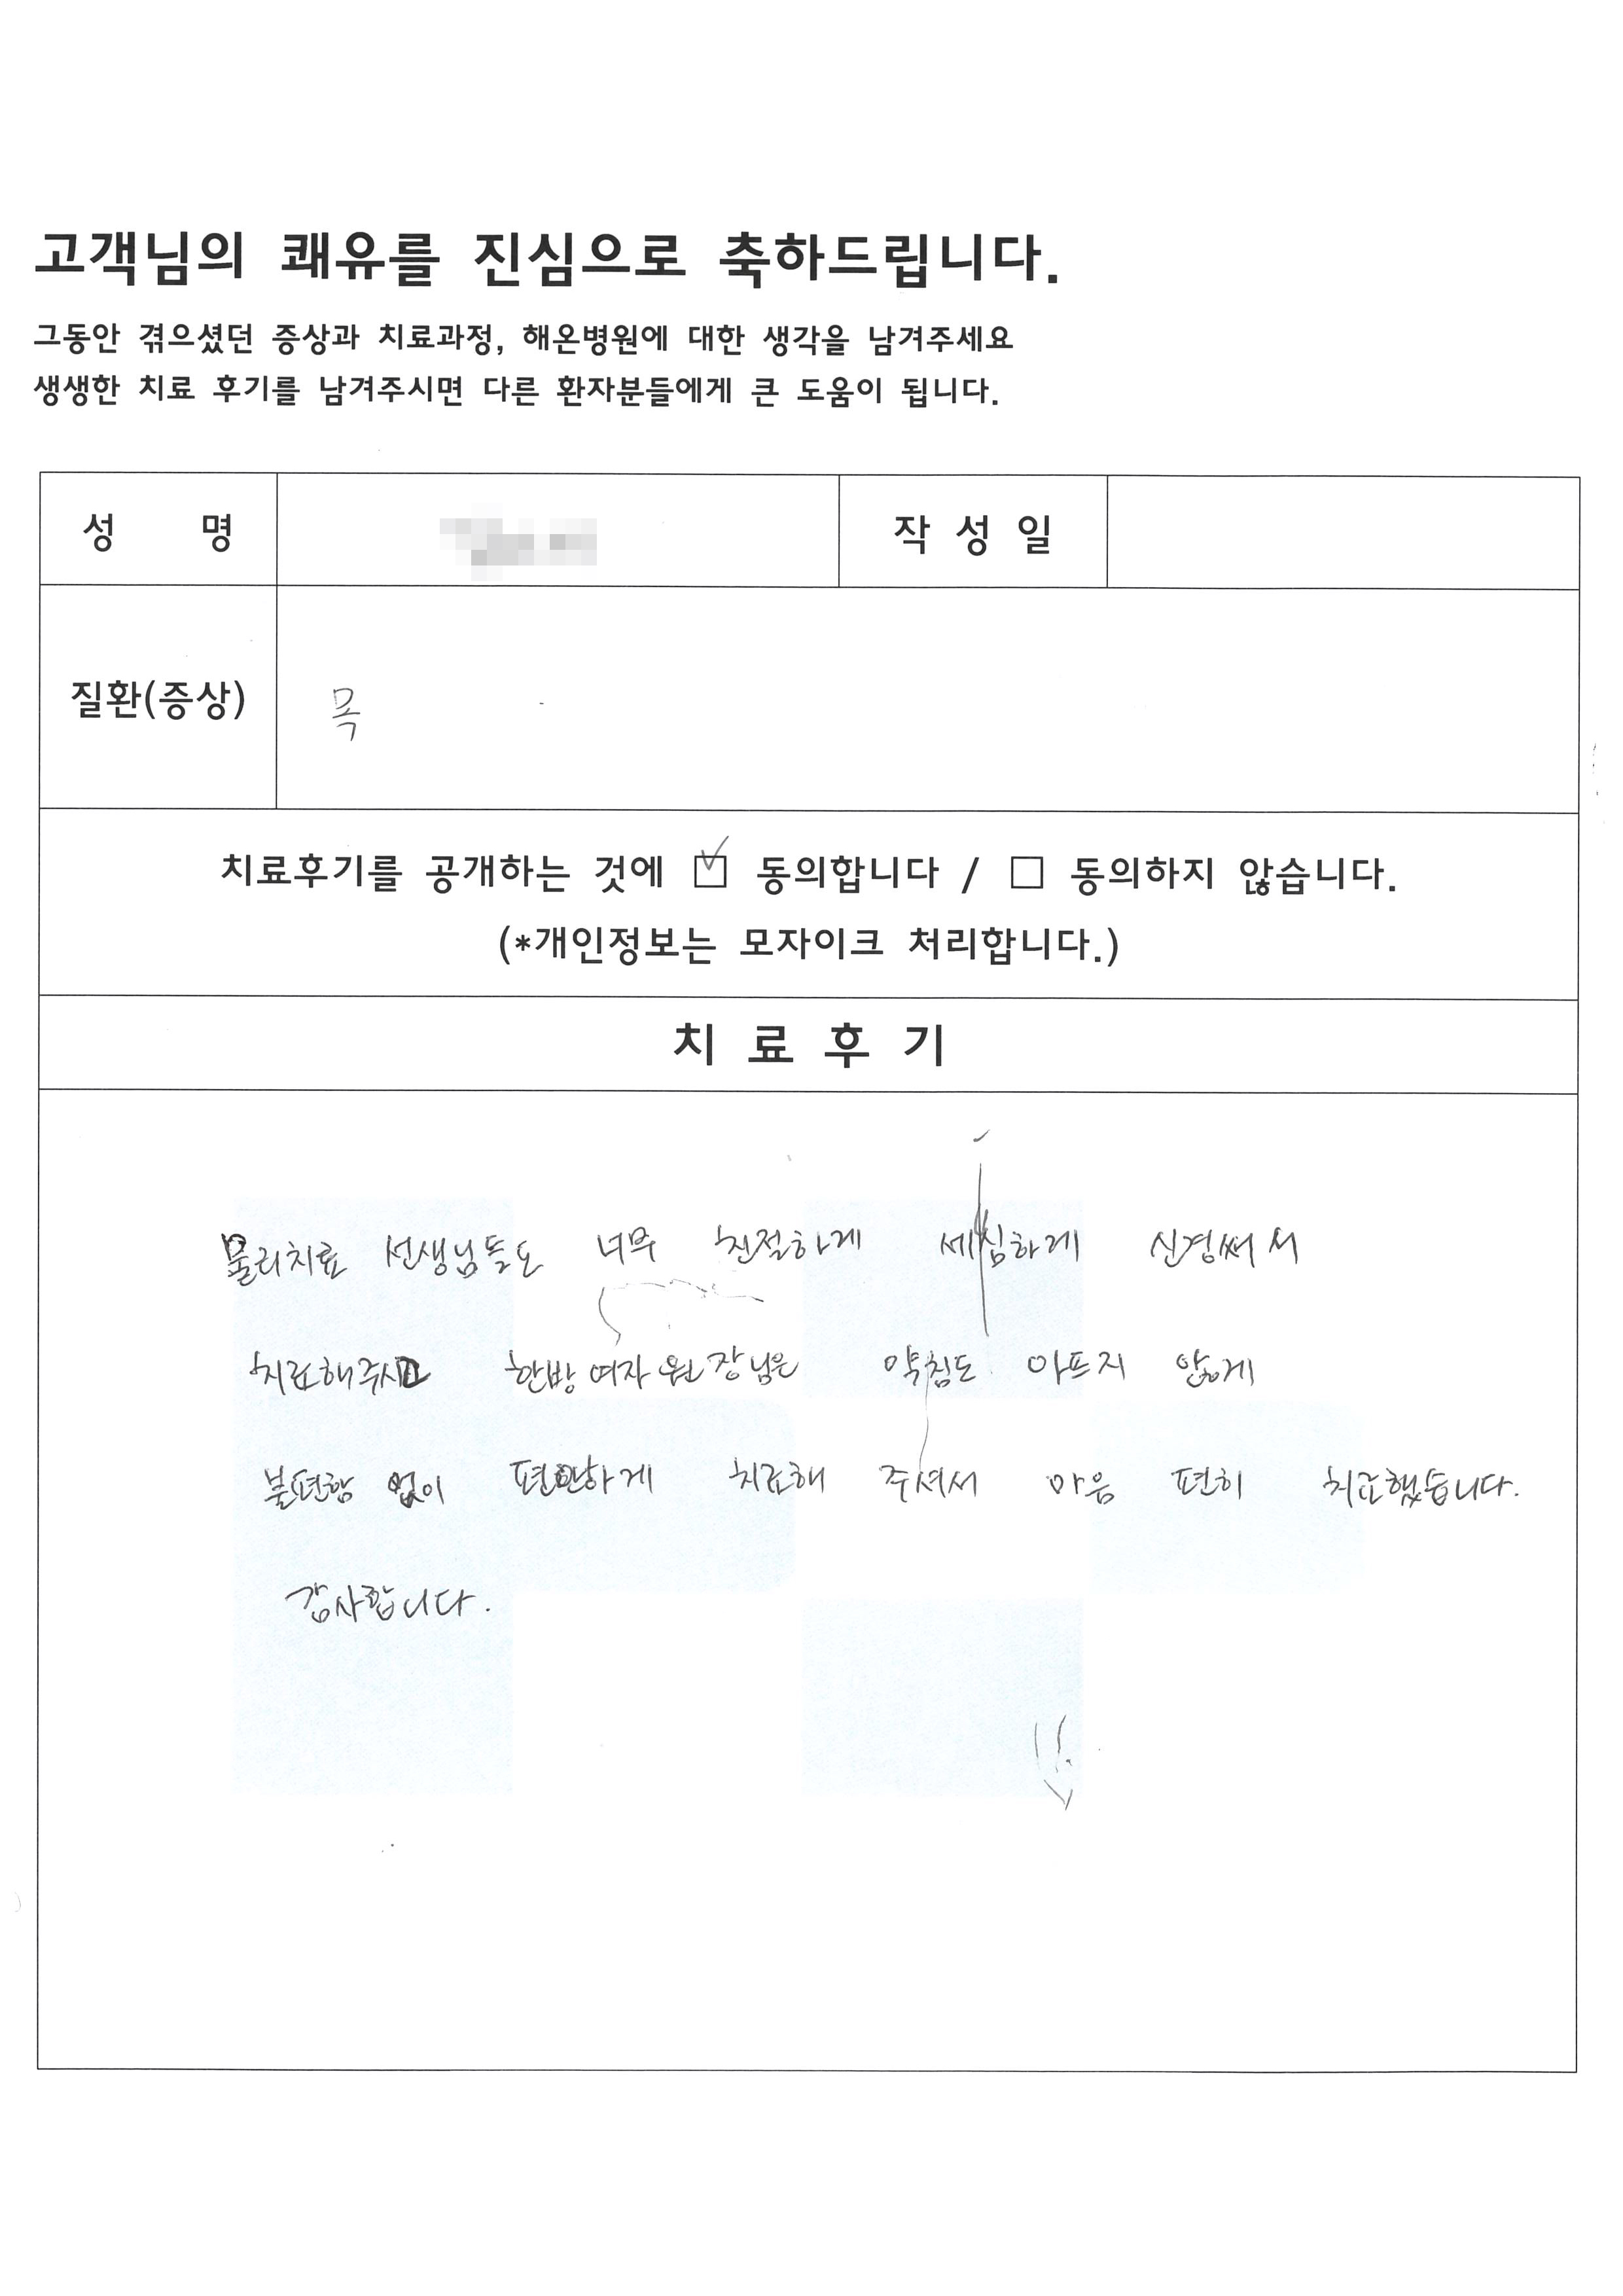 고객님의 쾌유를 진심으로 축하드립니다.
그동안 겪으셨던 증상과 치료과정, 해온병원에 대한 생각을 남겨주세요
생생한 치료 후기를 남겨주시면 다른 환자분들에게 큰 도움이 됩니다.
성 명 작 성 일
질환(증상) 목
치료후기를 공개하는 것에 ☑ 동의합니다 / ☐ 동의하지 않습니다.
(*개인정보는 모자이크 처리합니다.)
치 료 후 기
물리치료 선생님들도 너무 친절하게 세심하게 신경써서
치료해주시고 한방 여자 원장님은 약침도 아프지 않게
불편함 없이 편안하게 치료해 주셔서 마음 편히 치료했습니다.
감사합니다.